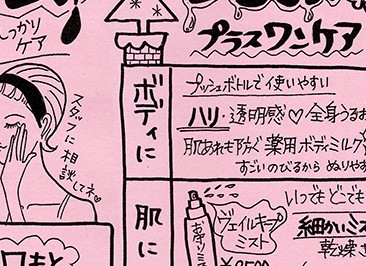 しっかり
ケア
プラスワンケア
スタッフに
相談してネ
ボディに
プッシュボトルで使いやすい
ハリ・透明感♡全身うるお
肌あれも防ぐ薬用ボディミルク
すごいのびるから ぬりやす
肌に
いつでもどこでも
ジェイルキープ
ミスト
細かいミス
乾燥さ